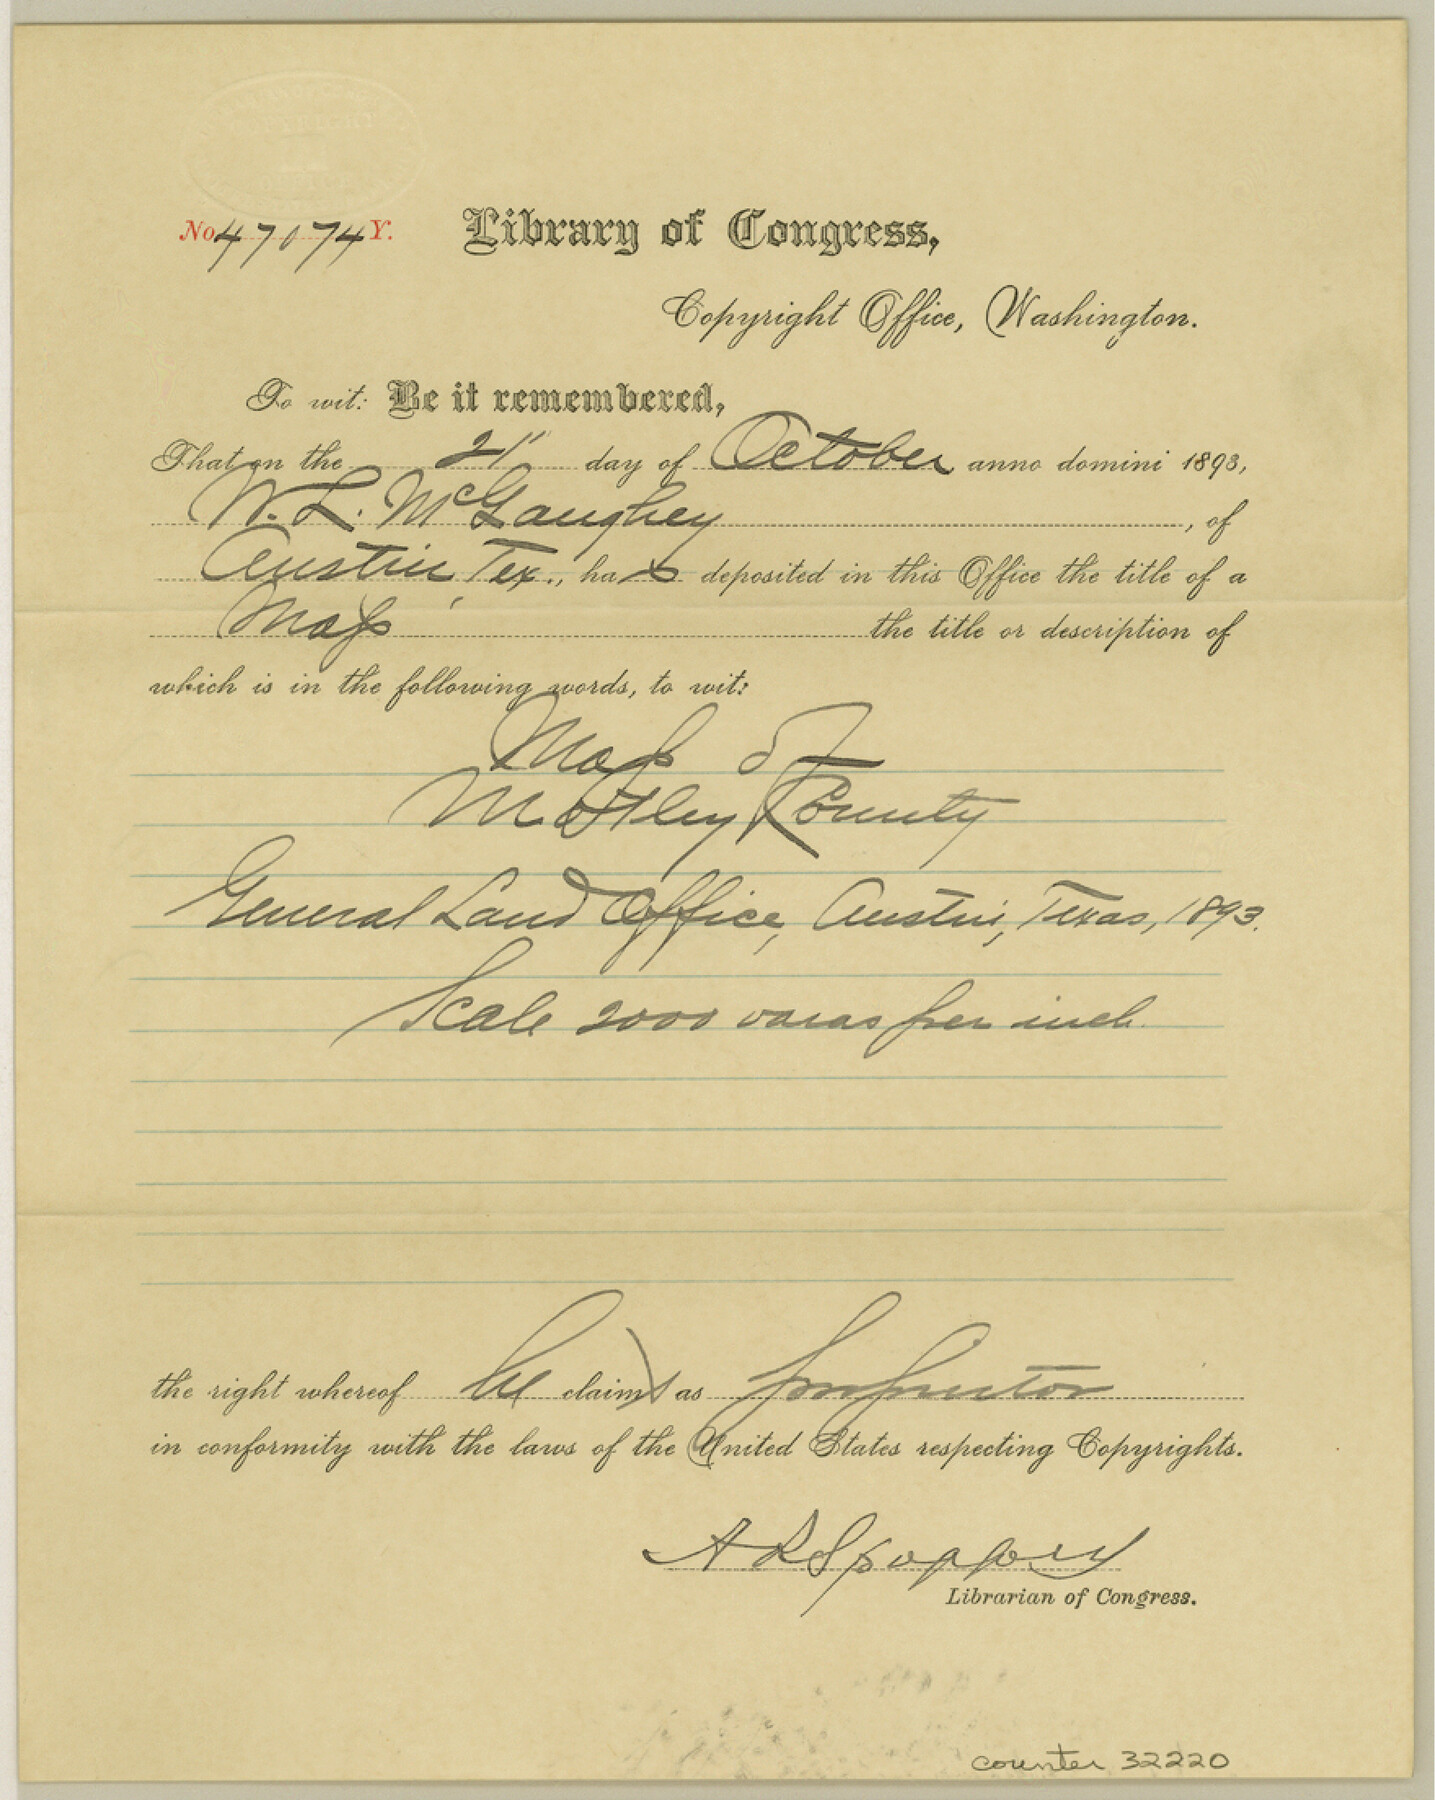 No 47074 Y. Library of Congress,
Copyright Office, Washington.
To wit: Be it remembered,
That on the 21" day of October anno domini 1893,
W. L. McGaughey, of
Austin, Tex., has deposited in this Office the title of a
Map the title or description of
which is in the following words, to wit:
Map of
Motley County
General Land Office, Austin, Texas, 1893.
Scale 2000 varas per inch.
the right whereof he claims as proprietor
in conformity with the laws of the United States respecting Copyrights.
A R Spofford
Librarian of Congress.
counter 32220